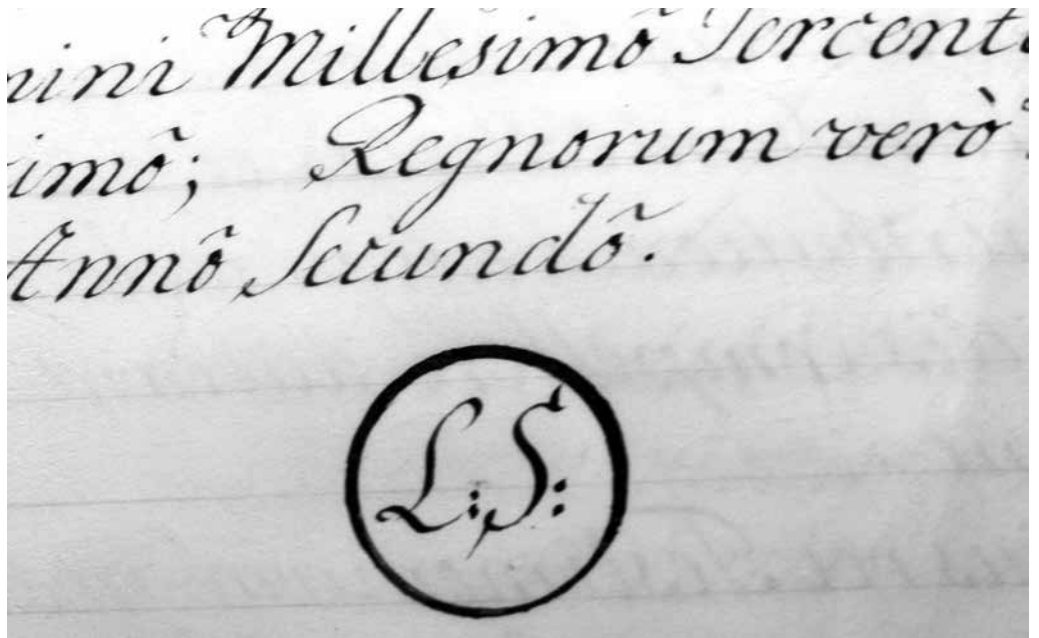 nini Millesimõ Tercent
imõ; Regnorum verò
Annõ Secundõ.
L:S: